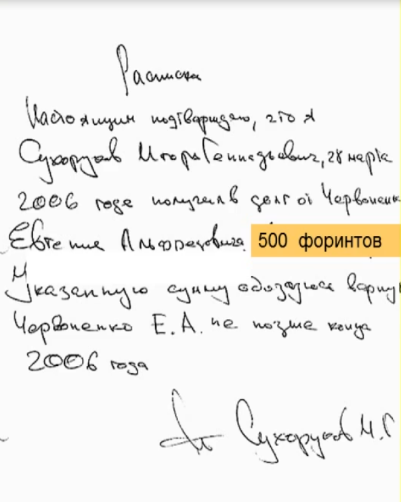 Расписка
Настоящим подтверждаю, что я
Сухоруков Игорь Геннадьевич, 28 марта
2006 года получил в долг от Червоненк
Евгения Альфредовича 500 форинтов
Указанную сумму обязуюсь верну
Червоненко Е.А. не позже конца
2006 года
Сухоруков И.Г